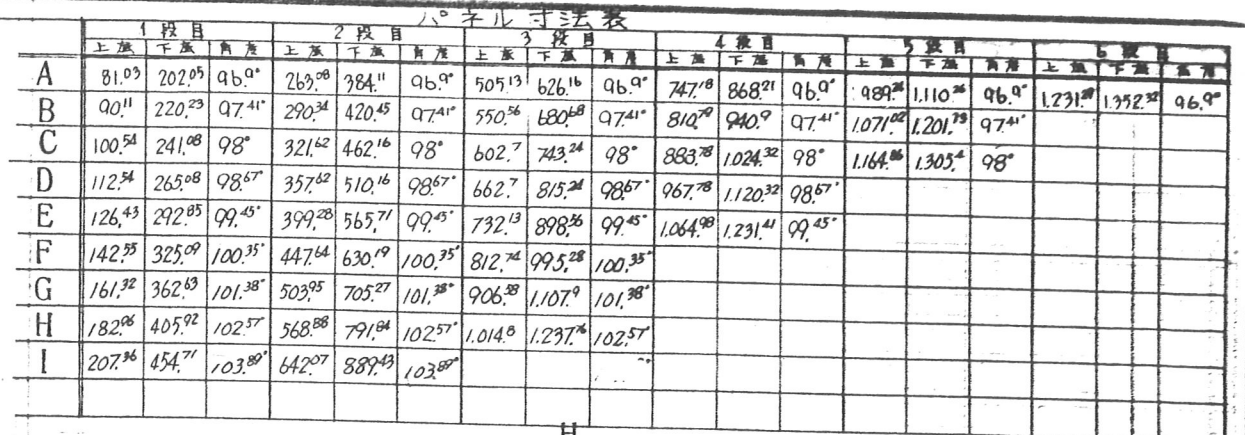 パネル寸法表
1段目 2段目 3段目 4段目 5段目 6段目
上底 下底 角度 上底 下底 角度 上底 下底 角度 上底 下底 角度 上底 下底 角度 上底 下底 角度
A 81.03 202.05 96.9° 263.08 384.11 96.9° 505.13 626.16 96.9° 747.18 868.21 96.9° 989.26 1.110.26 96.9° 1.231.29 1.352.32 96.9°
B 90.11 220.23 97.41° 290.34 420.45 97.41° 550.56 680.68 97.41° 810.79 940.9 97.41° 1.071.02 1.201.13 97.41°
C 100.54 241.08 98° 321.62 462.16 98° 602.7 743.24 98° 883.78 1.024.32 98° 1.164.86 1.305.4 98°
D 112.54 265.08 98.67° 357.62 510.16 98.67° 662.7 815.24 98.67° 967.78 1.120.32 98.67°
E 126.43 292.85 99.45° 399.28 565.71 99.45° 732.13 898.56 99.45° 1.064.98 1.231.41 99.45°
F 142.55 325.09 100.35° 447.64 630.19 100.35° 812.74 995.28 100.35°
G 161.32 362.63 101.38° 503.95 705.27 101.38° 906.58 1.107.9 101.38°
H 182.96 405.92 102.57° 568.88 791.84 102.57° 1.014.8 1.237.76 102.57°
I 207.36 454.71 103.89° 642.07 889.43 103.89°
H